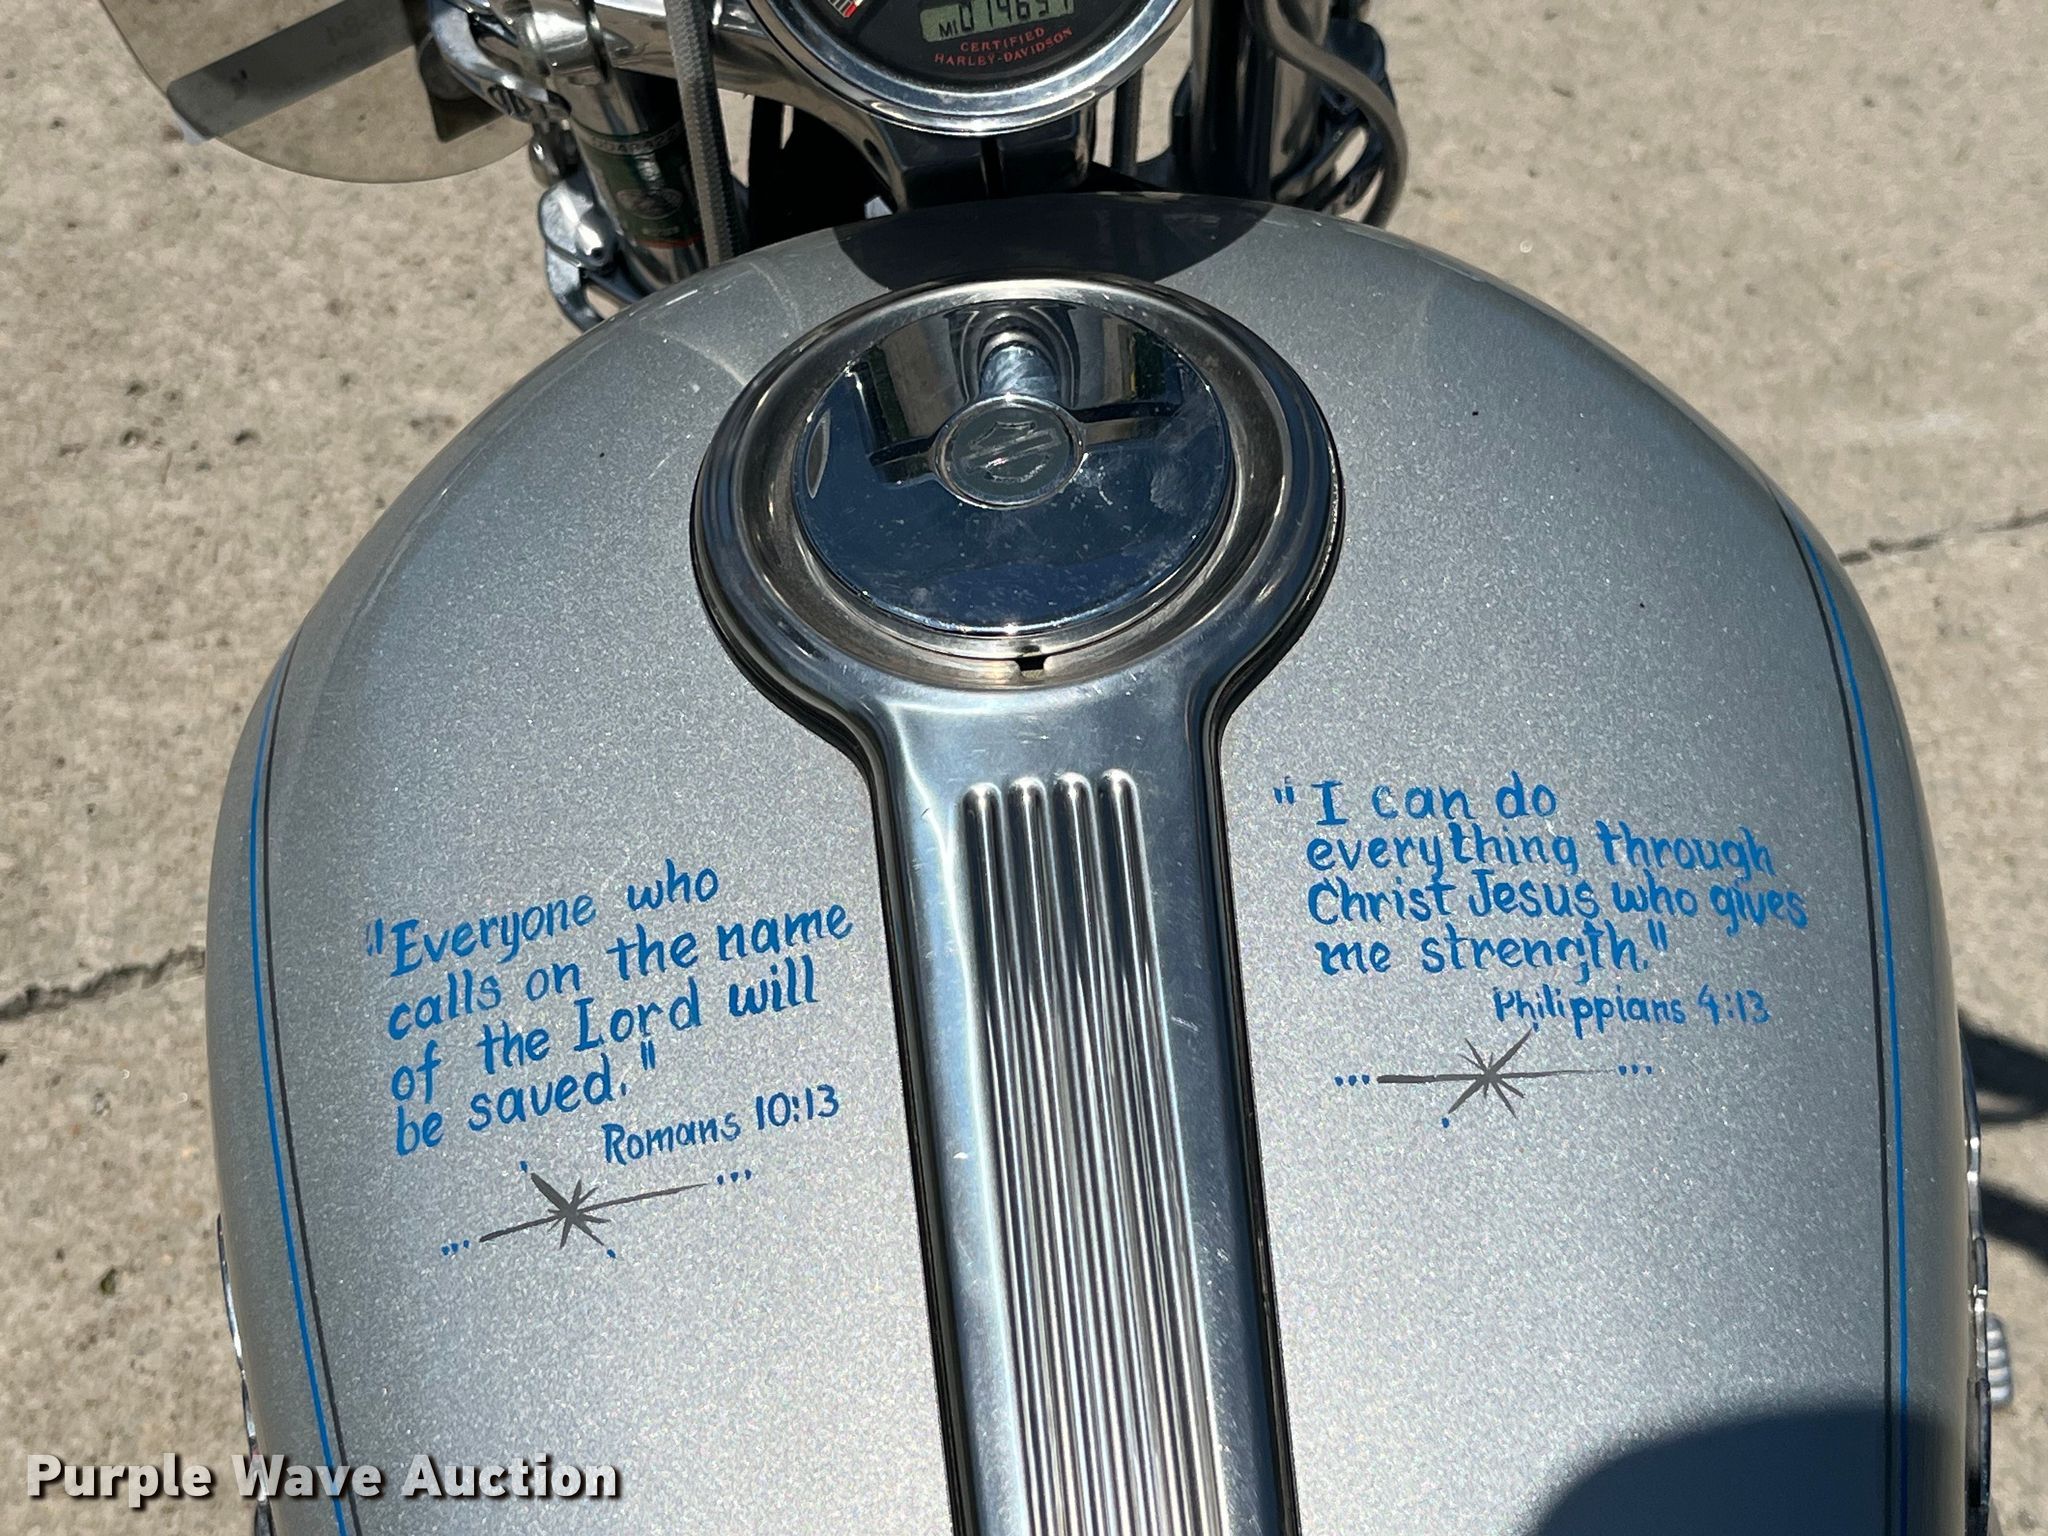 MI 014657
CERTIFIED
HARLEY-DAVIDSON
"Everyone who
calls on the name
of the Lord will
be saved."
Romans 10:13
"I can do
everything through
Christ Jesus who gives
me strength."
Philippians 4:13
Purple Wave Auction